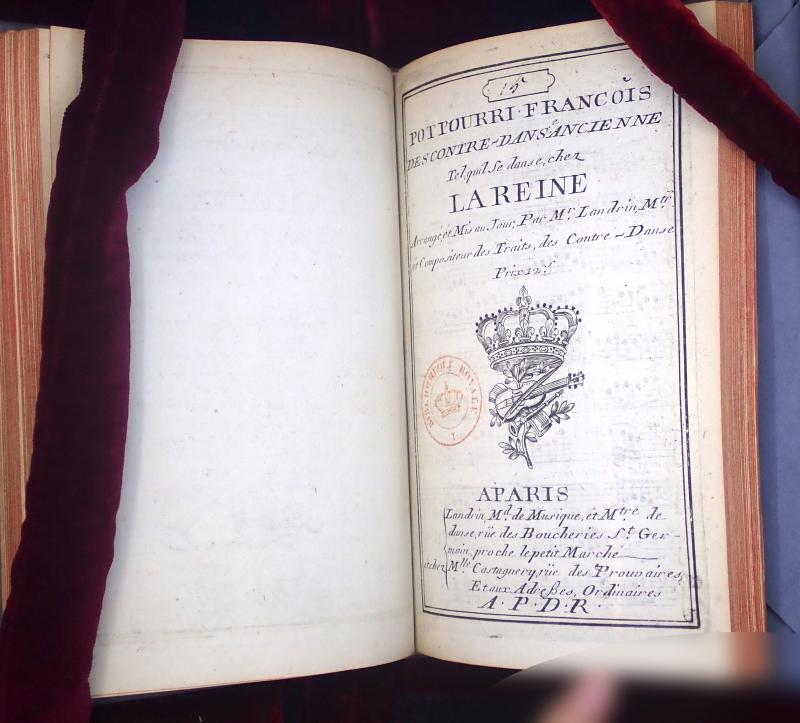 15
POTPOURRI·FRANCOIS
DES CONTRE-DANSE ANCIENNE
Tel qu'il Se danse, chez
LA REINE
Arrangé, ét Mis au Jour, Par Mr. Landrin, Mtr.
ét Compositeur des Traits, des Contre-Danse
Prix 12 s.
BIBLIOTHEQUE ROYALE
A PARIS
Landrin, Md. de Musique, ét Mtre. de
danse, rüe des Boucheries St. Ger-
main, proche le petit Marché
ét chez Mlle. Castagnery, rüe des Prouvaires
Et aux Adreßes, Ordinaires
A·P·D·R·